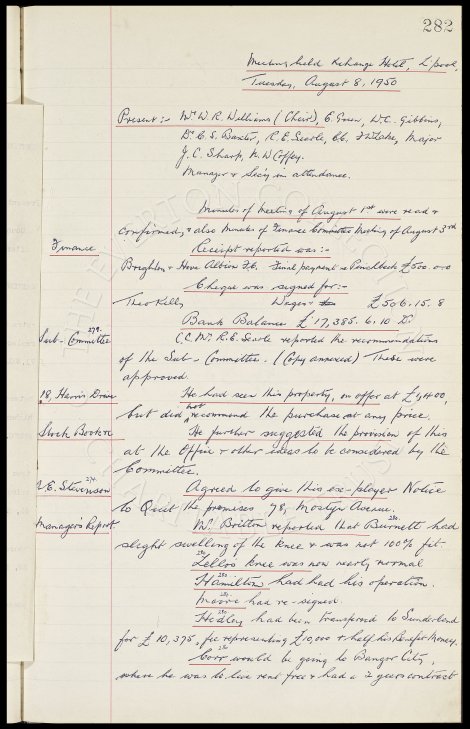 282
Meeting held Exchange Hotel, L'pool,
Tuesday, August 8, 1950
Present:- Mr W. R. Williams (Chair), C. Green, W.C. Gibbins,
Dr. C. S. Baxter, R. E. Searle, Major
J. C. Sharp, N. W Coffey.
Manager & Sec'y in attendance.
Minutes of Meeting of August 1st were read &
confirmed, & also Minutes of Finance Committee Meeting of August 3rd
Finance Receipt reported was:-
Brighton & Hove Albion F.C. Final payment re Pinchbeck £500.0.0
Cheque was signed for:-
Theo Kelly Wages £506.15.8
Bank Balance £17,385.6.10 Dr.
Sub-Committee 279. C.C. Mr. R. E. Searle reported the recommendations
of the Sub-Committee. (Copy annexed) These were
approved.
18, Harris Drive He had seen this property, on offer at £1,400,
but did not recommend the purchase at any price.
Stock Book re He further suggested the provision of this
at the Office & other ideas to be considered by the
Committee.
E. Stevenson 274. Agreed to give this ex-player Notice
to Quit the premises 78, Mostyn Avenue.
Managers Report. Mr. Britton reported that Burnett 280. had
slight swelling of the knee & was not 100% fit.
280. knee was now nearly normal
Hamilton 280. had had his operation.
Moore 280. had re-signed.
Hedley 280. had been transferred to Sunderland
for £10,375, fee representing £10,000 & half his benefit money.
Corr 280. would be going to Bangor City,
where he was to live rent free & had a 2 years contract
THE EVERTON COLLECTION